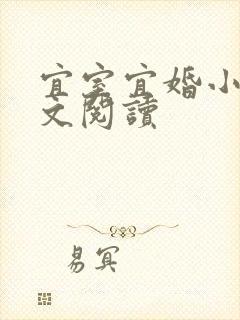 宜室宜婚小
文閱讀
易冥